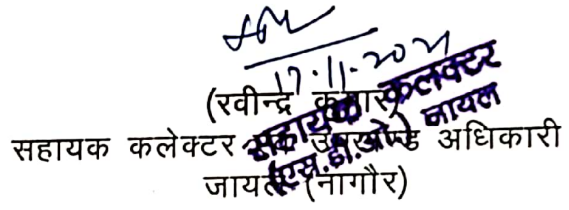 17.11.2021
(रवीन्द्र कुमार)
सहायक कलेक्टर एवं उपखण्ड अधिकारी
जायल (नागौर)
सहायक कलक्टर
(एस.डी.ओ.) जायल